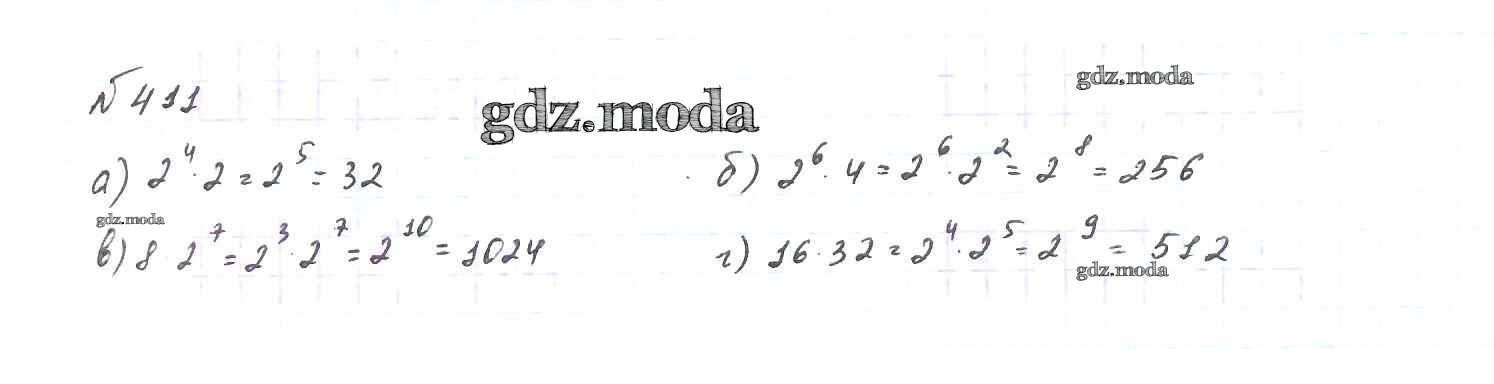 № 411
gdz.moda
gdz.moda
а) 2⁴·2 = 2⁵ = 32
б) 2⁶·4 = 2⁶·2² = 2⁸ = 256
gdz.moda
в) 8 2⁷ = 2³·2⁷ = 2¹⁰ = 1024
г) 16·32 = 2⁴·2⁵ = 2⁹ = 512
gdz.moda